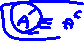 A ≡ A^c